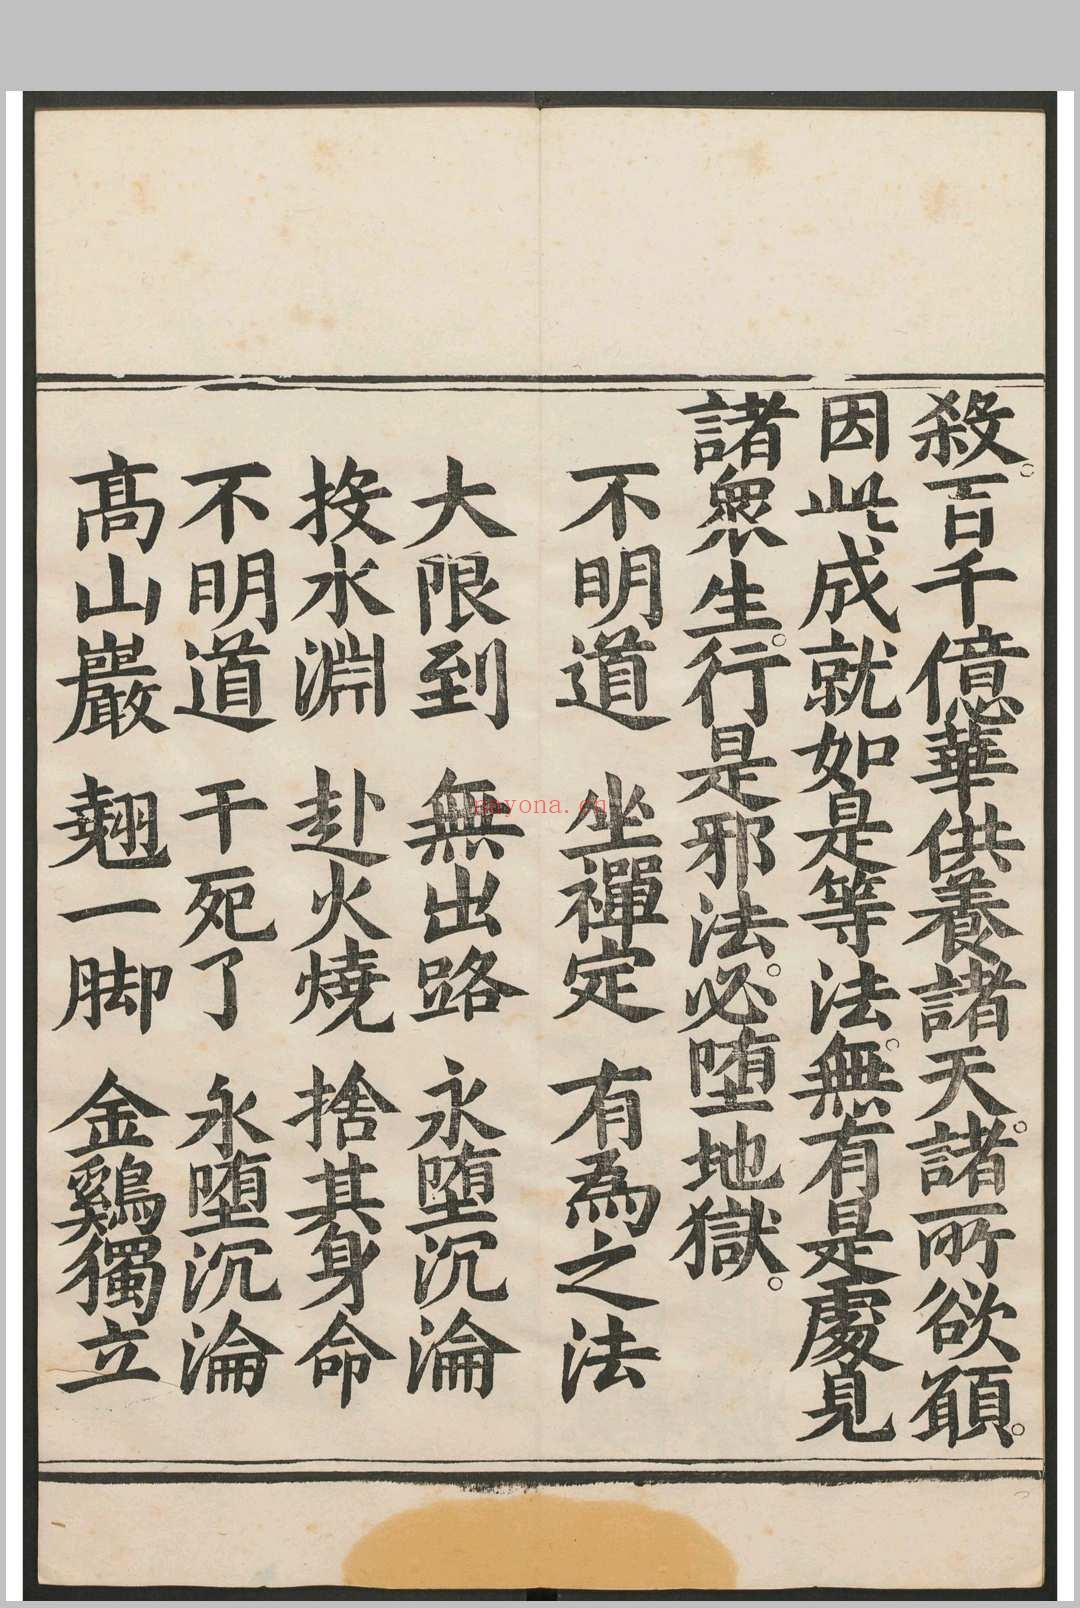 殺。百千億華供養諸天。諸所欲頋。
因此成就如是等法。無有是處見
諸衆生。行是邪法。必堕地獄。
不明道 坐禪定 有為之法
大限到 無出路 永堕沉淪
投水淵 赴火燒 捨其身命
不明道 干死了 永堕沉淪
髙山巖 翹一脚 金鷄獨立